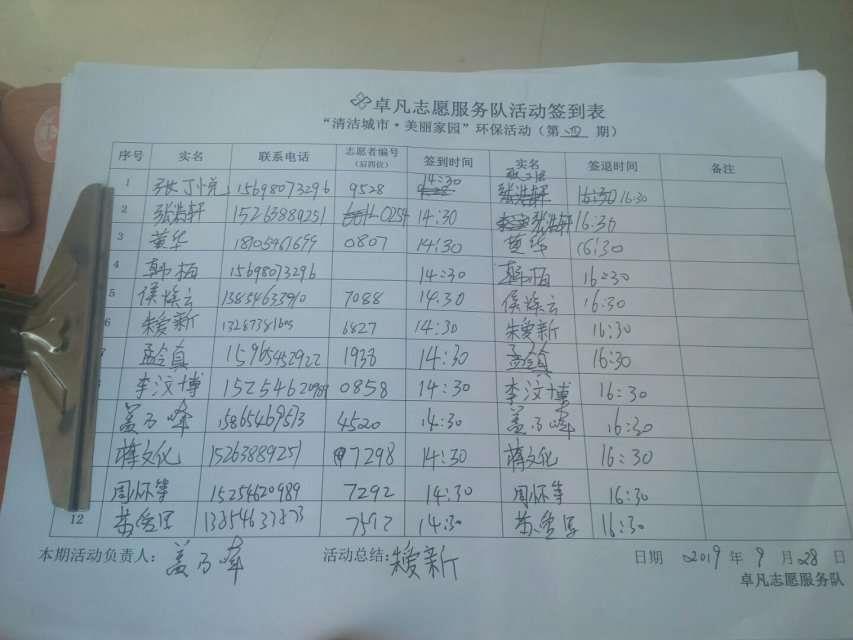 卓凡志愿服务队活动签到表
“清洁城市·美丽家园”环保活动（第 四 期）
序号 实名 联系电话 志愿者编号（后四位） 签到时间 实名 签退时间 备注
1 张丁悦 15698073296 9528 14:30 16:30
2 张浩轩 15263889251 0254 14:30 张浩轩 16:30
3 黄华 0807 14:30 黄华 16:30
4 韩柏 15698073296 14:30 韩柏 16:30
5 侯焕云 13854633910 7088 14:30 侯焕云 16:30
6 朱爱新 6827 14:30 朱爱新 16:30
孟令真 15965452922 1938 14:30 孟令真 16:30
李汶博 15254620989 0858 14:30 李汶博 16:30
盖乃峰 15865469513 4520 14:30 盖乃峰 16:30
蒋文化 15263889251 7298 14:30 蒋文化 16:30
周怀华 15254620989 7292 14:30 周怀华 16:30
12 13854633873 7592 14:30 16:30
本期活动负责人： 盖乃峰 活动总结: 朱爱新 日期 2019 年 9 月 28 日
卓凡志愿服务队